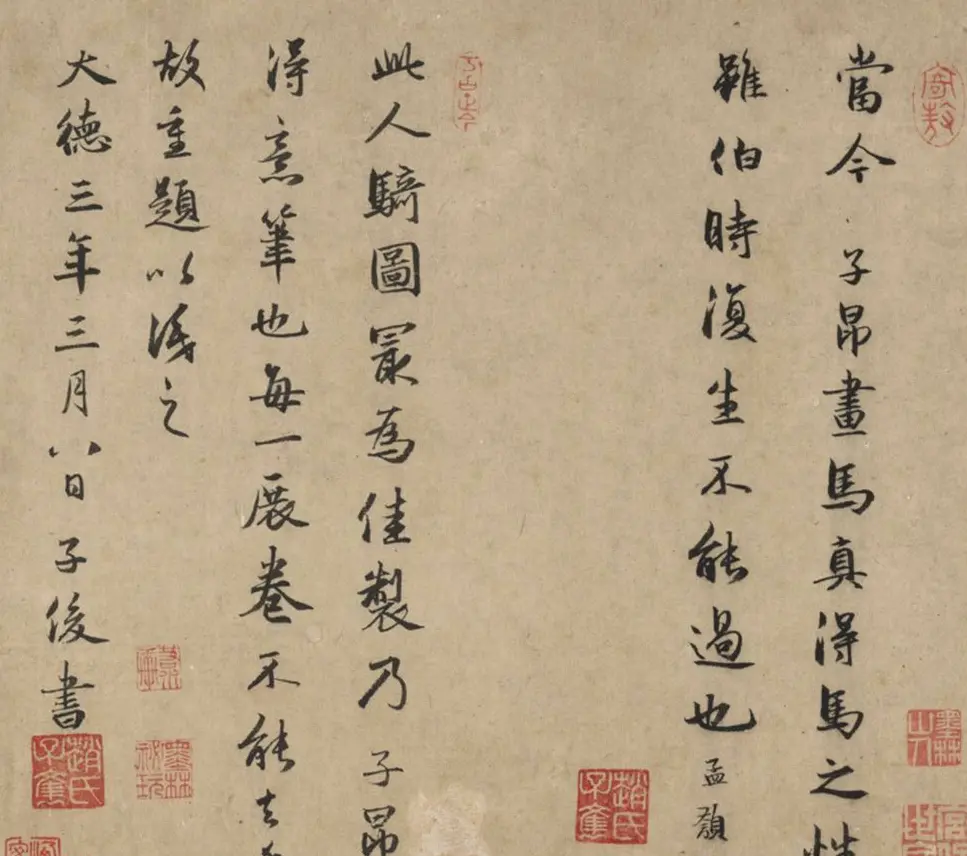 當今子昂畫馬真得馬之性
雖伯時復生不能過也孟頫
此人騎圖冣為佳製乃子昂
得意筆也每一展卷不能去
故重題以識之
大德三年三月八日子俊書
趙氏子
墨林山人
墨林祕玩
趙氏子